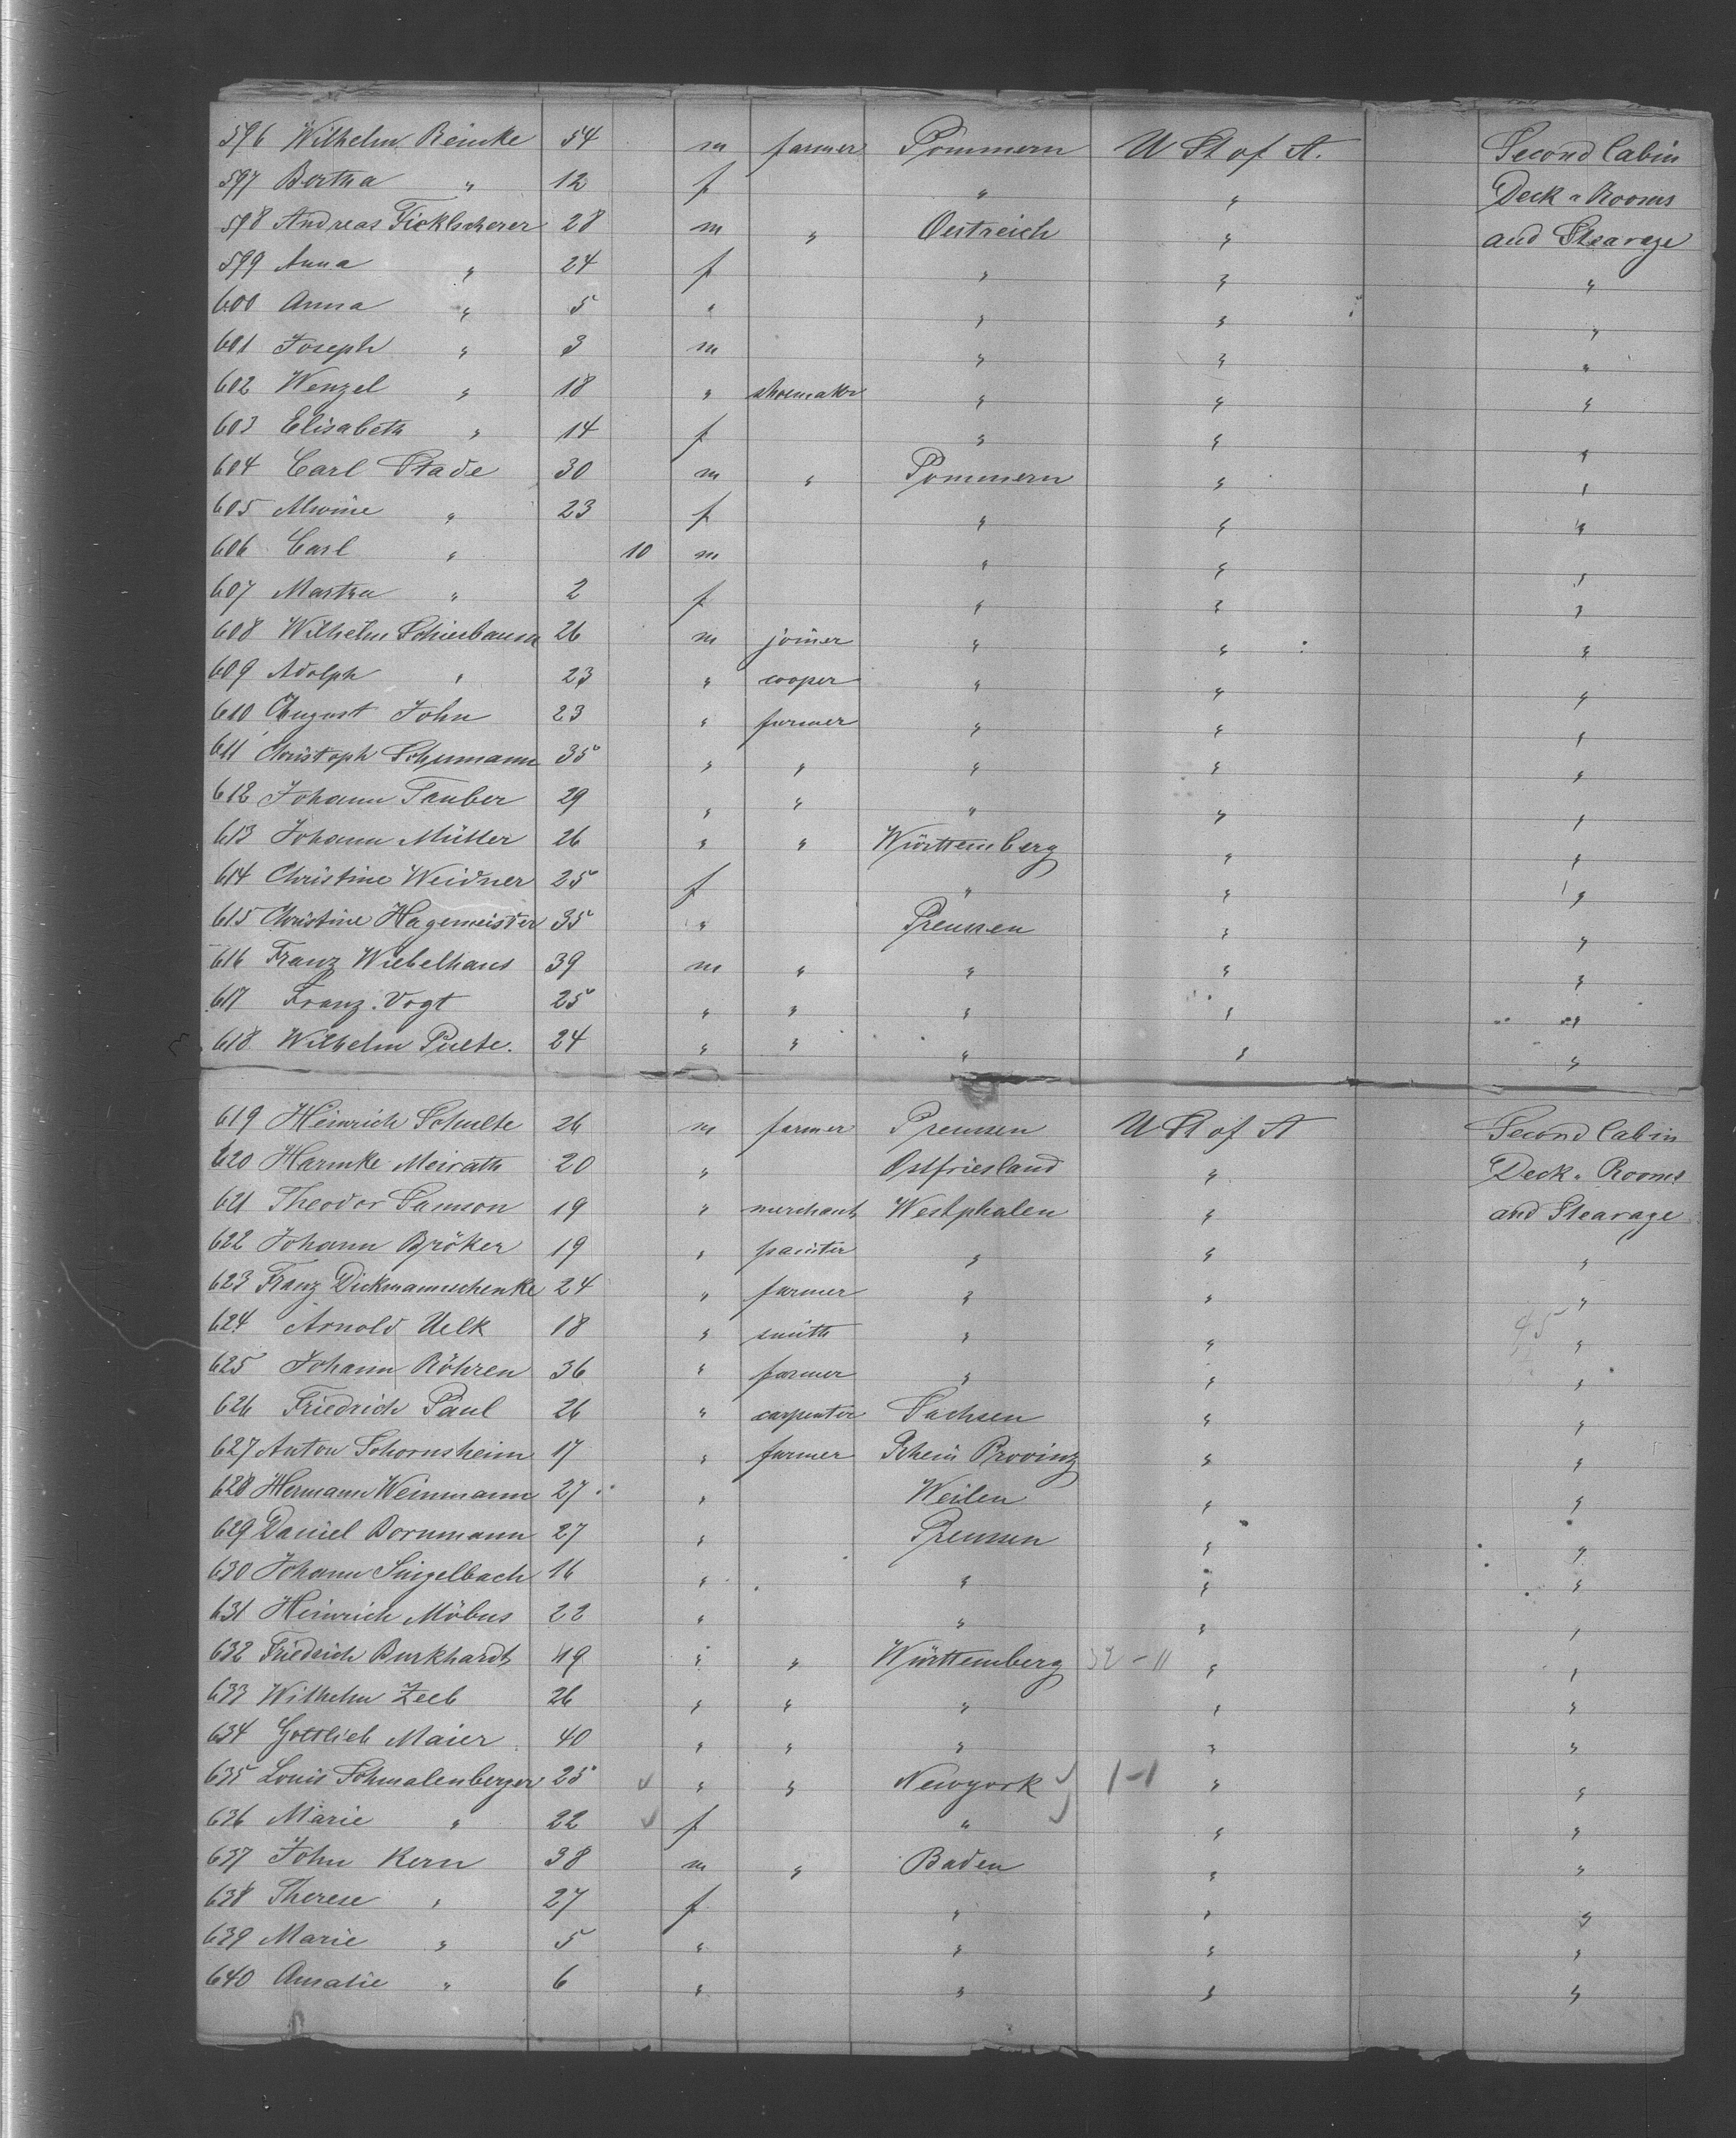 596 Wilhelm Reinke 54 m farmer Pommern U St of A. Second Cabin
597 Bertha " 12 f " " Deck " Rooms
598 Andreas Ficklscherer 28 m " Oestreich " and Stearage
599 Anna " 24 f " " "
600 Anna " 5 " " " "
601 Joseph " 3 m " " "
602 Wenzel " 18 " shoemaker " " "
603 Elisabeth " 14 f " " "
604 Carl Stade 30 m " Pommern " "
605 Alwine " 23 f " " "
606 Carl " 10 m " " "
607 Martha " 2 f " " "
608 Wilhelm Schiesbaum 26 m joiner " " "
609 Adolph " 23 " cooper " " "
610 August John 23 " farmer " " "
611 Christoph Schumann 35 " " " " "
612 Johann Tauber 29 " " " " "
613 Johann Müller 26 " " Württemberg " "
614 Christine Weidner 25 f " " "
615 Christine Hagemeister 35 " Preussen " "
616 Franz Wiebelhaus 39 m " " " "
617 Franz Vogt 25 " " " " "
618 Wilhelm Pulte. 24 " " " " "
619 Heinrich Schulte 26 m farmer Preussen U St of A Second Cabin
620 Harmke Meirath 20 " Ostfriesland " Deck " Rooms
621 Theodor Samson 19 " merchant Westphalen " and Stearage
622 Johann Bröker 19 " painter " " "
623 Franz Dickmannschenke 24 " farmer " " "
624 Arnold Uelk 18 " smith " " "
625 Johann Röhren 36 " farmer " " "
626 Friedrich Paul 26 " carpenter Sachsen " "
627 Anton Schornsheim 17 " farmer Rhein Provinz " "
628 Hermann Weinmann 27 " Weilen " "
629 Daniel Bornmann 27 " Preussen " "
630 Johann Singelbach 16 " " " "
631 Heinrich Möbus 22 " " " "
632 Friedrich Burkhardt 49 " " Württemberg " "
633 Wilhelm Zeeb 26 " " " " "
634 Gottlieb Maier 40 " " " " "
635 Louis Schmalenberger 25 " " Newyork 1-1 " "
636 Marie " 22 f " " "
637 John Kern 38 m " Baden " "
638 Therese " 27 f " " "
639 Marie " 5 " " " "
640 Amalie " 6 " " " "